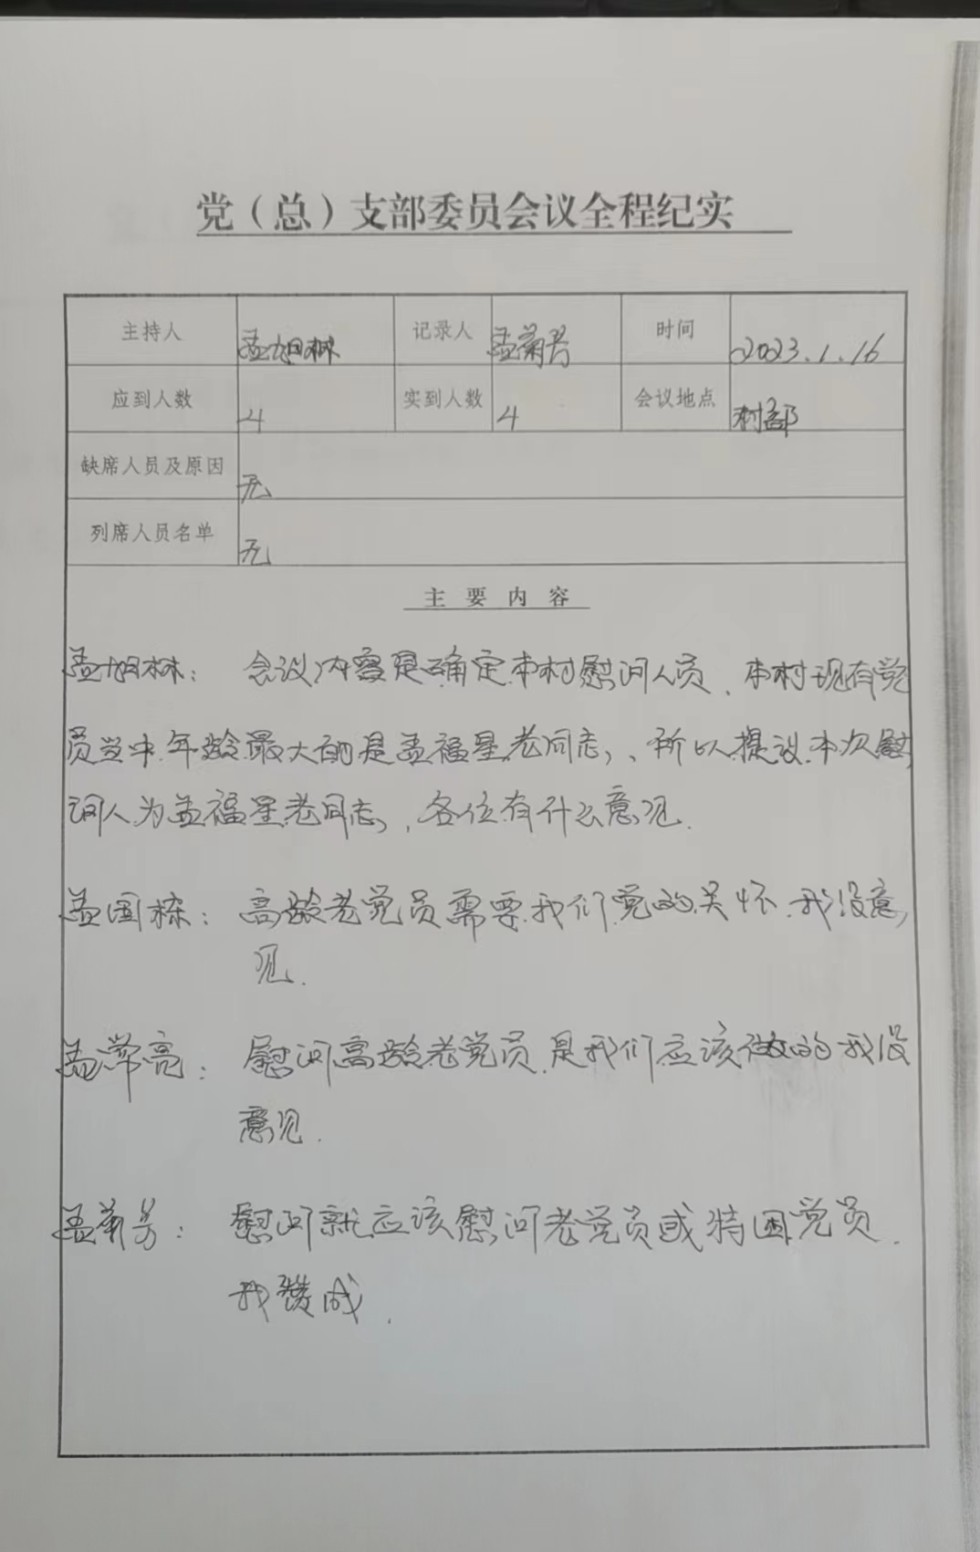 党（总）支部委员会议全程纪实
主持人 孟旭林 记录人 孟菊芳 时间 2023.1.16
应到人数 4 实到人数 4 会议地点 村部
缺席人员及原因 无
列席人员名单 无
主要内容
孟旭林： 会议内容是确定本村慰问人员、本村现有党
员当中年龄最大的是孟福星老同志，、所以提议本次慰
问人为孟福星老同志，，各位有什么意见.
孟国栋： 高龄老党员需要我们党的关怀.我没意
见.
孟常亮： 慰问高龄老党员.是我们应该做的我没
意见.
孟菊芳： 慰问就应该慰问老党员或特困党员.
我赞成.